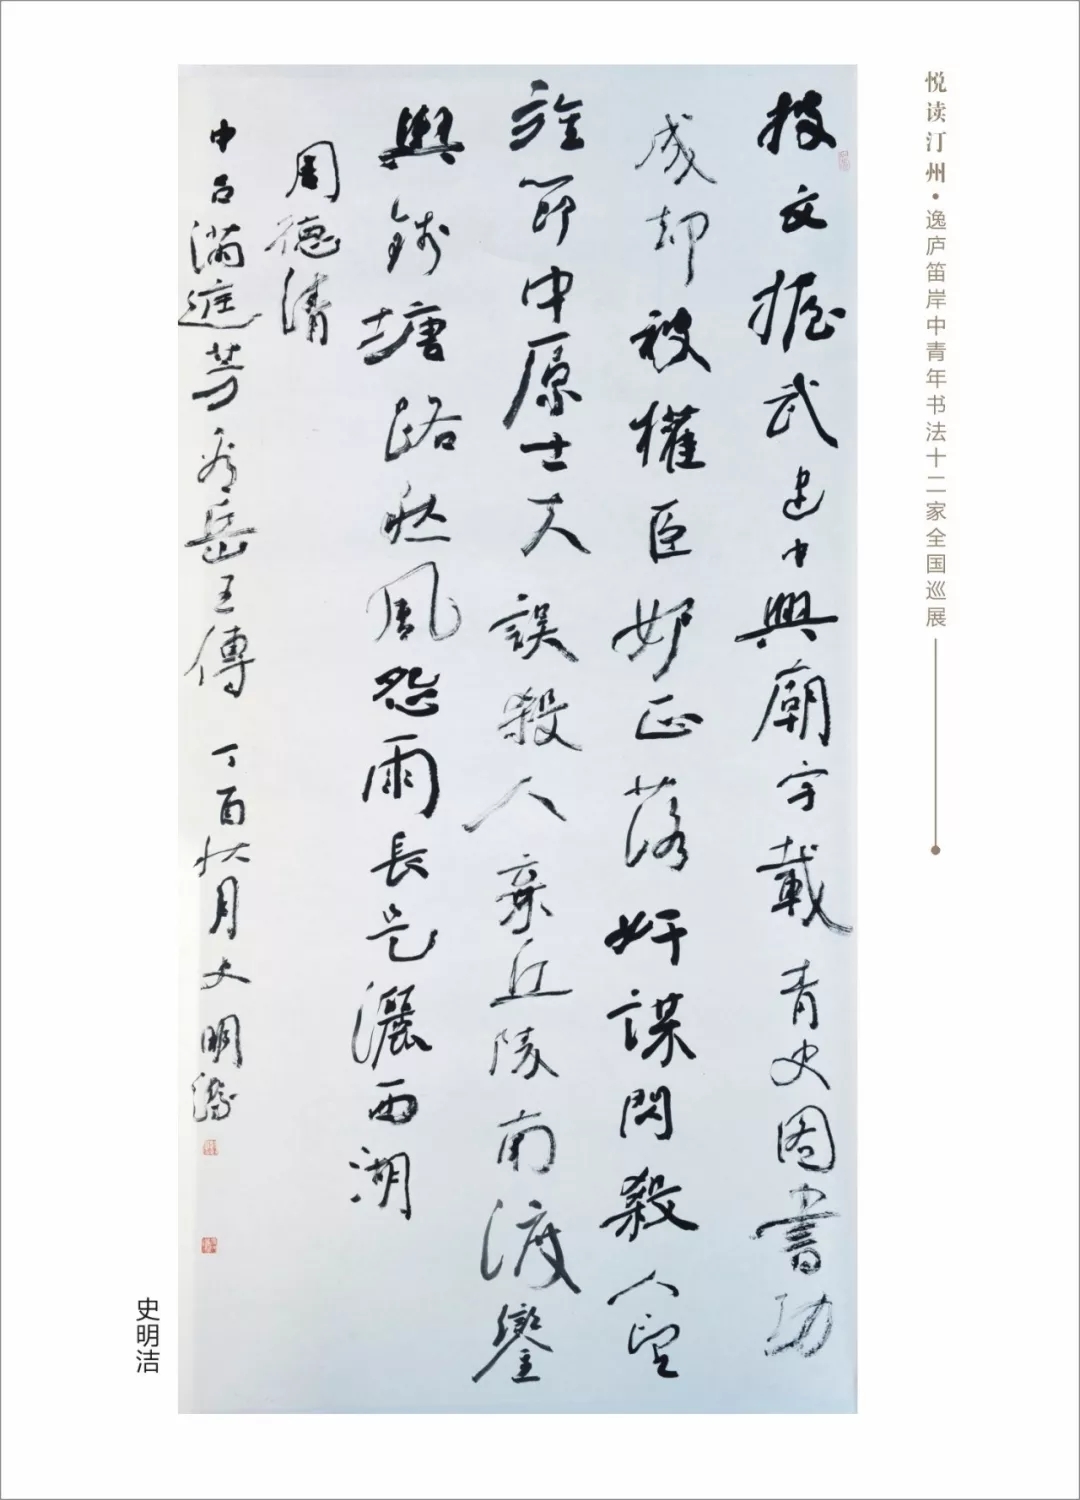 悦读汀州•逸庐笛岸中青年书法十二家全国巡展
披文握武建中興廟宇載青史图書功
成却被權臣妒正落奸謀閃殺人望
旌節中原士夫誤殺人棄丘陵南渡鑾
輿錢塘路愁風怨雨長是灑西湖
周德清
中吕滿庭芳看岳王傳 丁酉秋月史明潔
史明洁